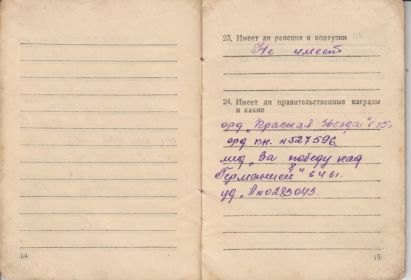 23. Имеет ли ранения и контузии
Не имеет
24. Имеет ли правительственные награды
и какие
орд „Красная Звезда"
орд кн. №527596
мед „За победу над
Германией"
уд „А №0283043.
14
15